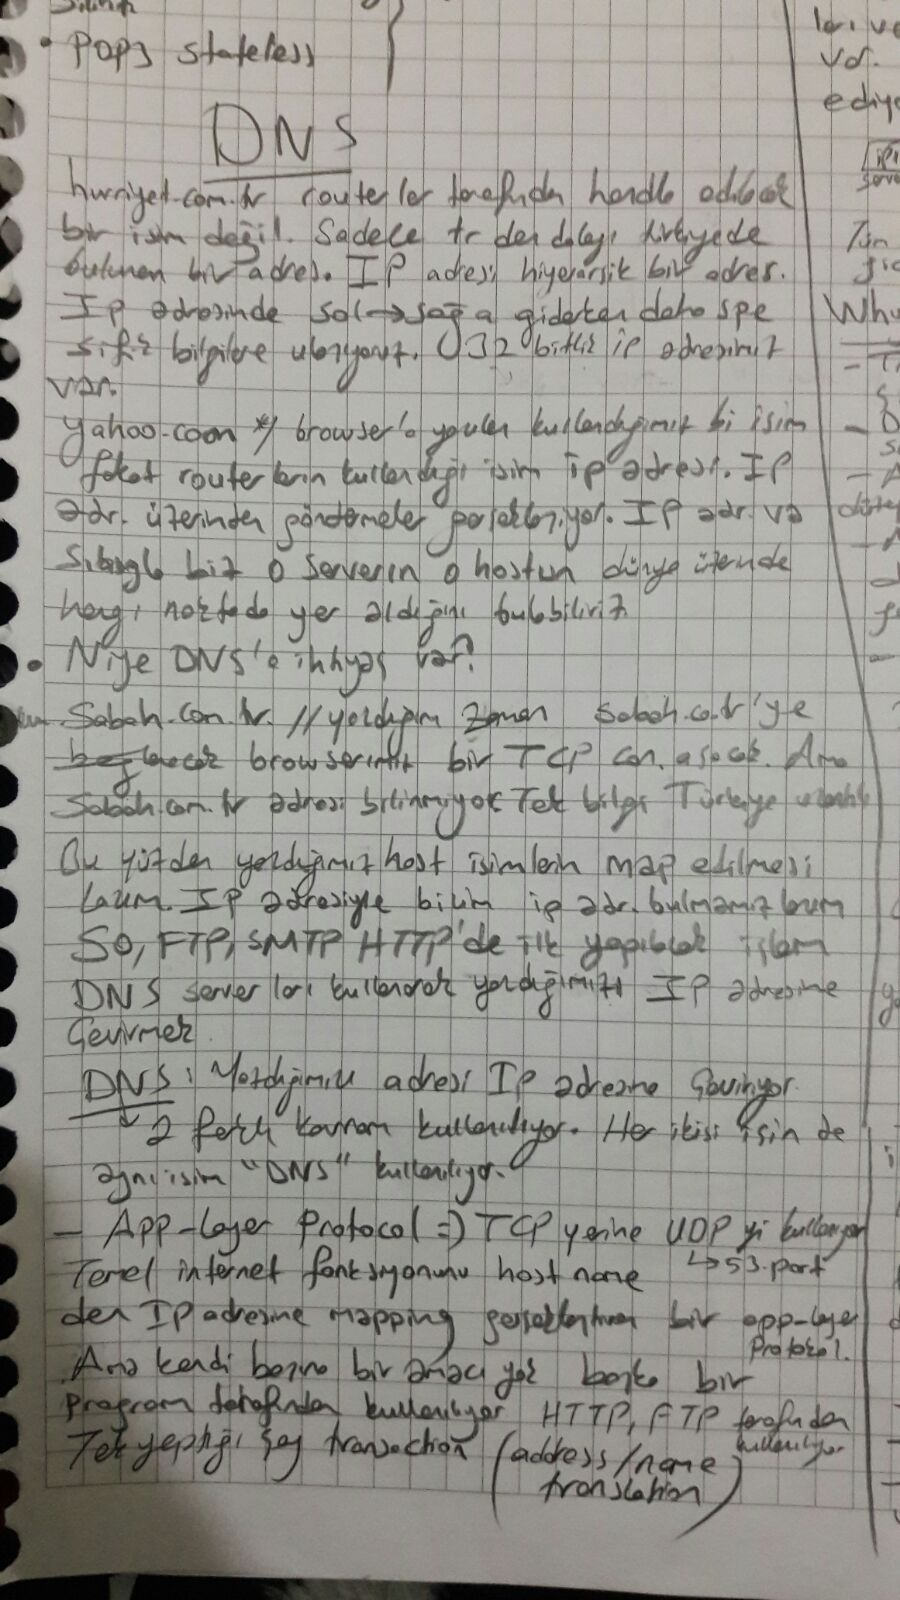 • POP3 stateless
DNS
hurriyet.com.tr routerler tarafından handle edilecek
bir isim değil. Sadece tr den dolayı türkiyede
bulunan bir adres. IP adresi hiyerarşik bir adres.
Ip adresinde sol→sağ a giderken daha spe
sifik bilgilere ulaşıyoruz. 32 bitlik ip adresimiz
var.
yahoo.com browser'a yazılan kullandığımız bi isim
fakat routerların kullandığı isim ip adresi. IP
adr. üzerinden göndermeler gerçekleşiyor. IP adr. va
sıtasıyla biz o serverın o hostun dünya üzerinde
hangi noktada yer aldığını bulabiliriz
• Niye DNS'e ihtiyaç var?
Sabah.com.tr. // yazdığım zaman sabah.co.tr'ye
browserımız bir TCP con. açacak. Ama
Sabah.com.tr adresi bilinmiyor Tek bilgi Türkiye
Bu yüzden yazdığımız host isimlerin map edilmesi
lazım. IP adresiyle bizim ip adr. bulmamız lazım
SO, FTP, SMTP HTTP'de ilk yapılacak işlem
DNS serverları kullanarak yazdığımızı IP adresine
çevirmek.
DNS: Yazdığımız adresi IP adresine çeviriyor.
2 farklı kavram kullanılıyor. Her ikisi için de
aynı isim "DNS" kullanılıyor.
- App-layer Protocol => TCP yerine UDP yi kullanıyor
↳ 53. port
Temel internet fonksiyonunu host name
den IP adresine mapping gerçekleştiren bir app-layer
Protokol.
Ama kendi başına bir amacı yok başka bir
program tarafından kullanılıyor HTTP, FTP tarafından
kullanılıyor
Tek yaptığı şey transaction (address/name
translation)
Whu